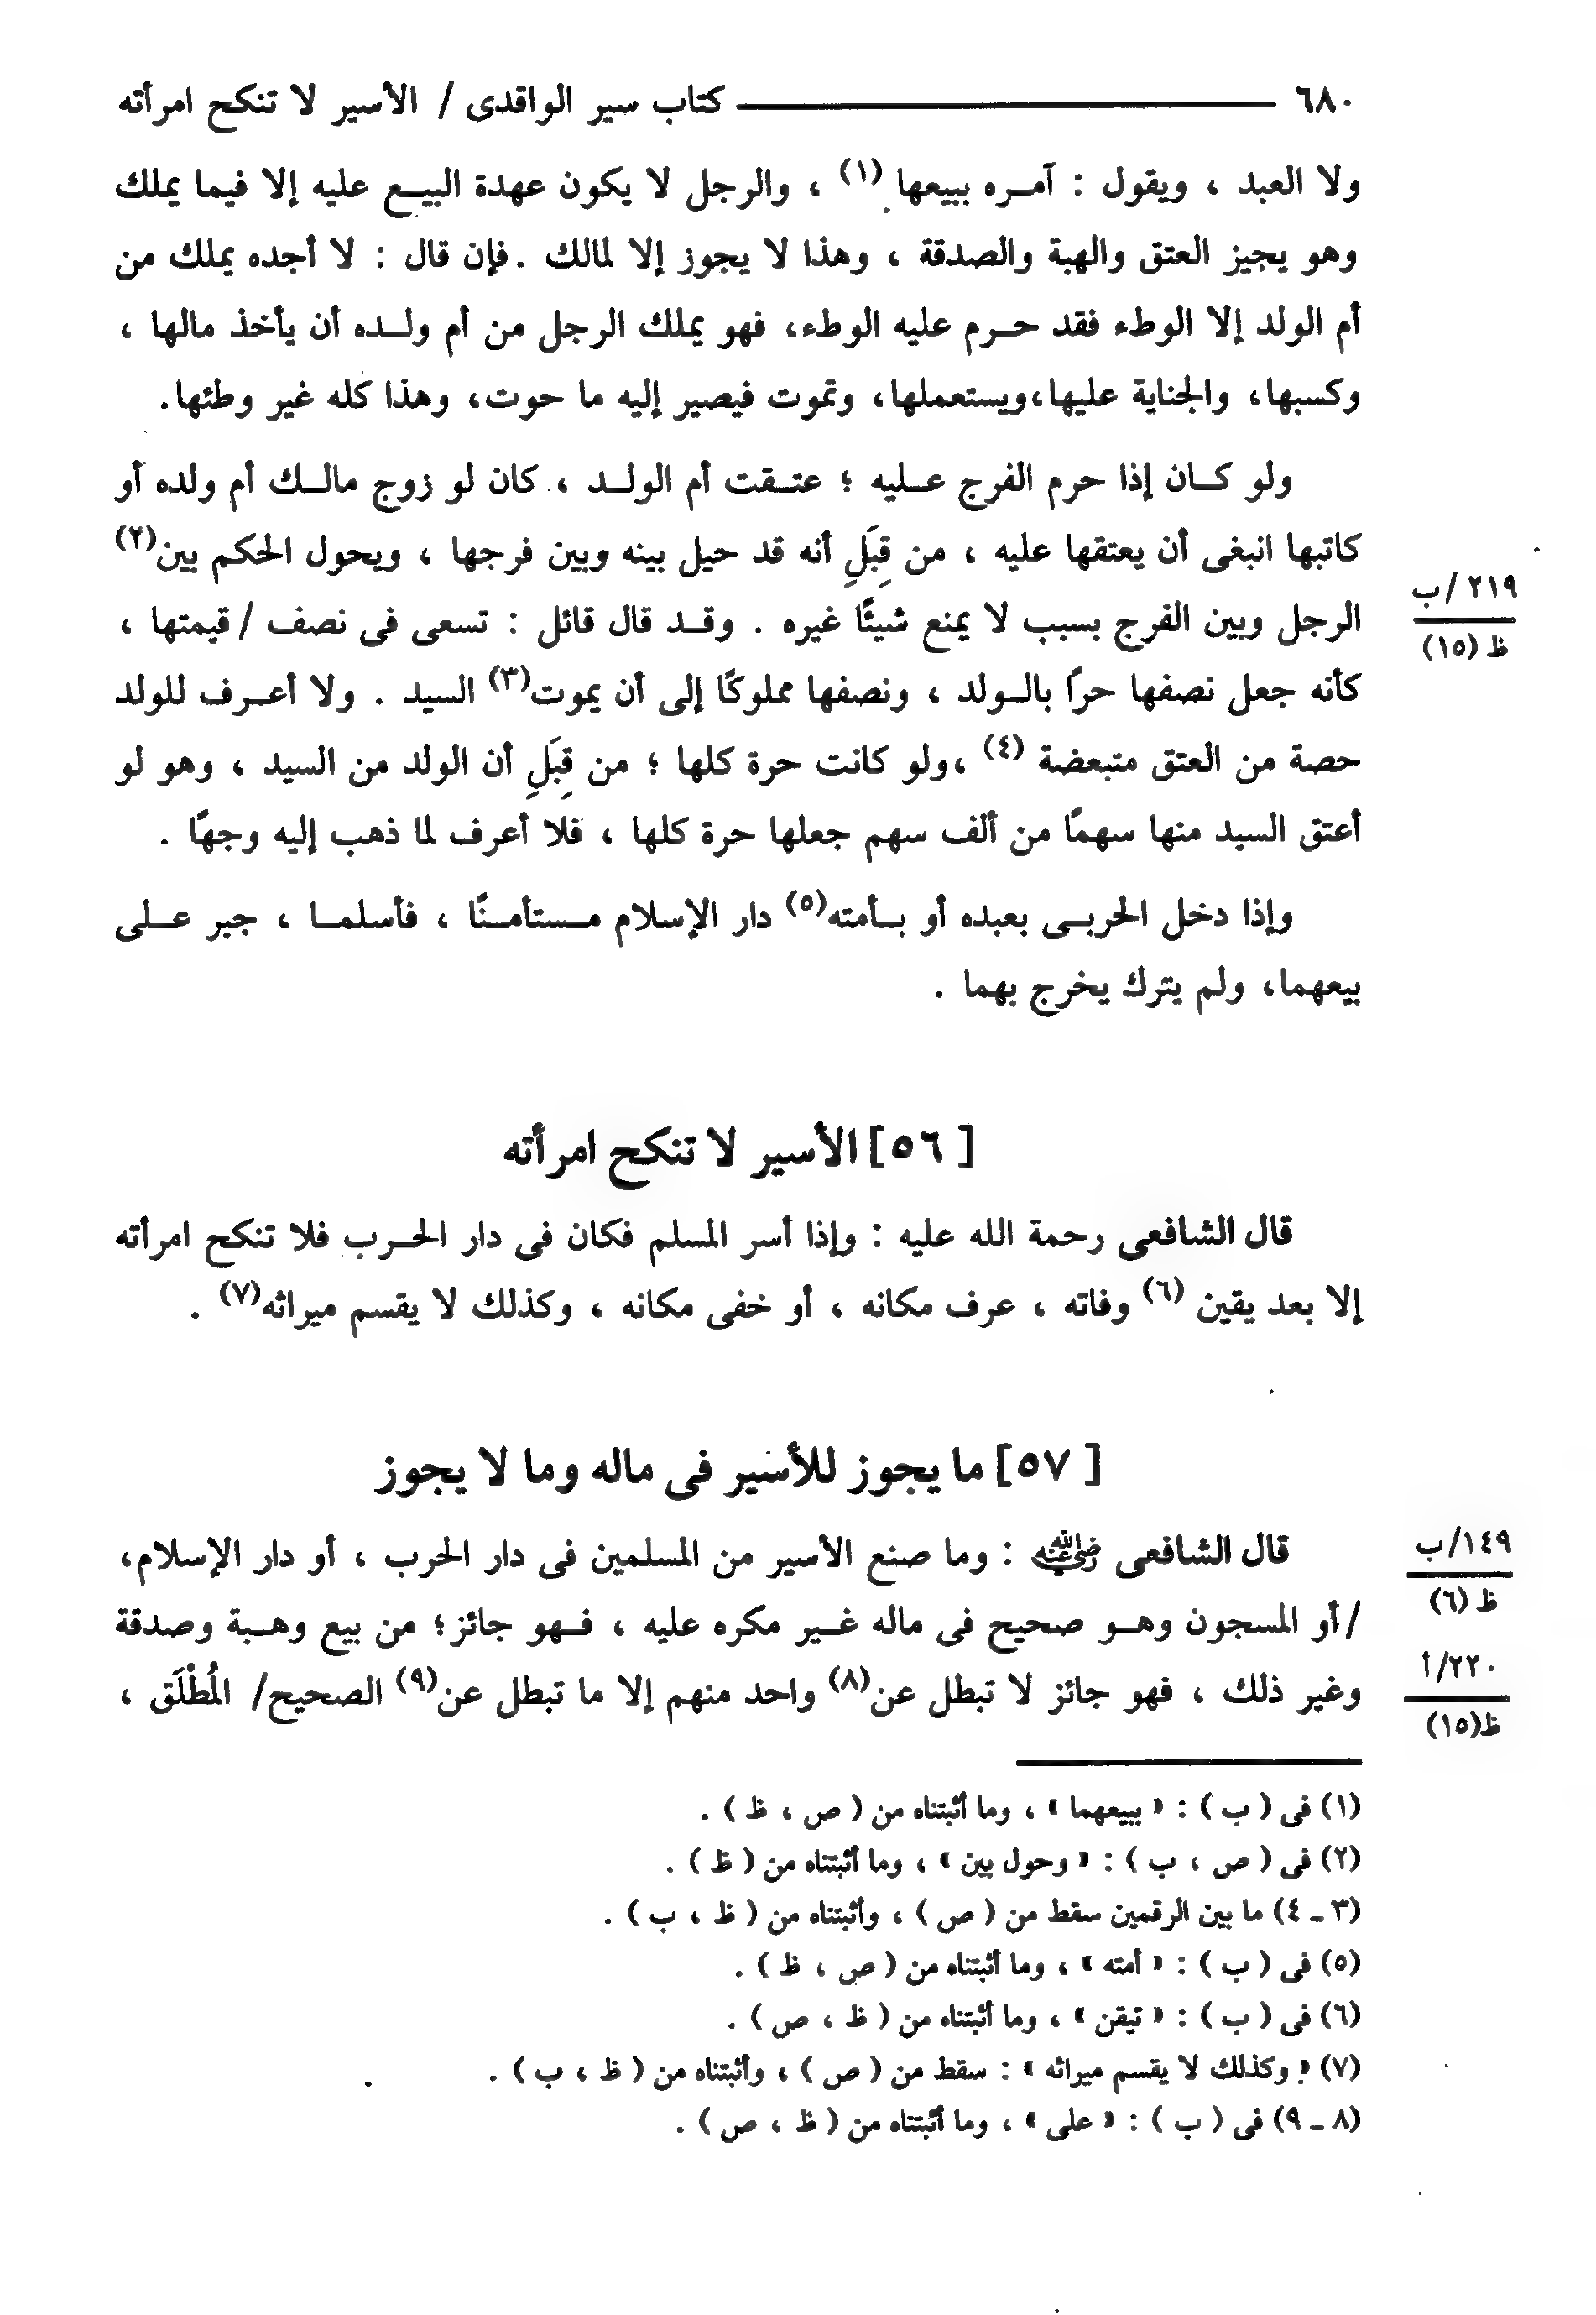 ٦٨٠ كتاب سير الواقدى / الأسير لا تنكح امرأته
ولا العبد ، ويقول : آمره ببيعها (١) ، والرجل لا يكون عهدة البيع عليه إلا فيما يملك
وهو يجيز العتق والهبة والصدقة ، وهذا لا يجوز إلا لمالك . فإن قال : لا أجده يملك من
أم الولد إلا الوطء فقد حرم عليه الوطء، فهو يملك الرجل من أم ولده أن يأخذ مالها ،
وكسبها، والجناية عليها،ويستعملها، وتموت فيصير إليه ما حوت، وهذا كله غير وطئها.
ولو كان إذا حرم الفرج عليه ؛ عتقت أم الولد ، كان لو زوج مالك أم ولده أو
كاتبها انبغى أن يعتقها عليه ، من قِبَلِ أنه قد حيل بينه وبين فرجها ، ويحول الحكم بين(٢)
٢١٩ /ب
الرجل وبين الفرج بسبب لا يمنع شيئًا غيره . وقد قال قائل : تسعى فى نصف / قيمتها ،
ظ (١٥)
كأنه جعل نصفها حرًا بالولد ، ونصفها مملوكًا إلى أن يموت(٣) السيد . ولا أعرف للولد
حصة من العتق متبعضة (٤) ،ولو كانت حرة كلها ؛ من قِبَلِ أن الولد من السيد ، وهو لو
أعتق السيد منها سهمًا من ألف سهم جعلها حرة كلها ، فلا أعرف لما ذهب إليه وجهًا .
وإذا دخل الحربى بعبده أو بأمته(٥) دار الإسلام مستأمنًا ، فأسلما ، جبر على
بيعهما، ولم يترك يخرج بهما .
[ ٥٦] الأسير لا تنكح امرأته
قال الشافعى رحمة الله عليه : وإذا أسر المسلم فكان فى دار الحرب فلا تنكح امرأته
إلا بعد يقين (٦) وفاته ، عرف مكانه ، أو خفى مكانه ، وكذلك لا يقسم ميراثه(٧) .
[ ٥٧] ما يجوز للأسير فى ماله وما لا يجوز
قال الشافعى رضي الله عنه : وما صنع الأسير من المسلمين فى دار الحرب ، أو دار الإسلام،
١٤٩/ب
ظ (٦)
/أو المسجون وهو صحيح فى ماله غير مكره عليه ، فهو جائز؛ من بيع وهبة وصدقة
٢٢٠/أ
وغير ذلك ، فهو جائز لا تبطل عن(٨) واحد منهم إلا ما تبطل عن(٩) الصحيح/ المُطْلَق ،
ظ(١٥)
(١) فى ( ب ) : « ببيعهما » ، وما أثبتناه من ( ص ، ظ ) .
(٢) فى ( ص ، ب ) : « وحول بين » ، وما أثبتناه من ( ظ ) .
(٣ ـ ٤) ما بين الرقمين سقط من ( ص ) ، وأثبتناه من ( ظ ، ب ) .
(٥) فى ( ب ) : « أمته » ، وما أثبتناه من ( ص ، ظ ) .
(٦) فى ( ب ) : « تيقن » ، وما أثبتناه من ( ظ ، ص ) .
(٧) « وكذلك لا يقسم ميراثه » : سقط من ( ص ) ، وأثبتناه من ( ظ ، ب ) .
(٨ ـ ٩) فى ( ب ) : « على » ، وما أثبتناه من ( ظ ، ص ) .